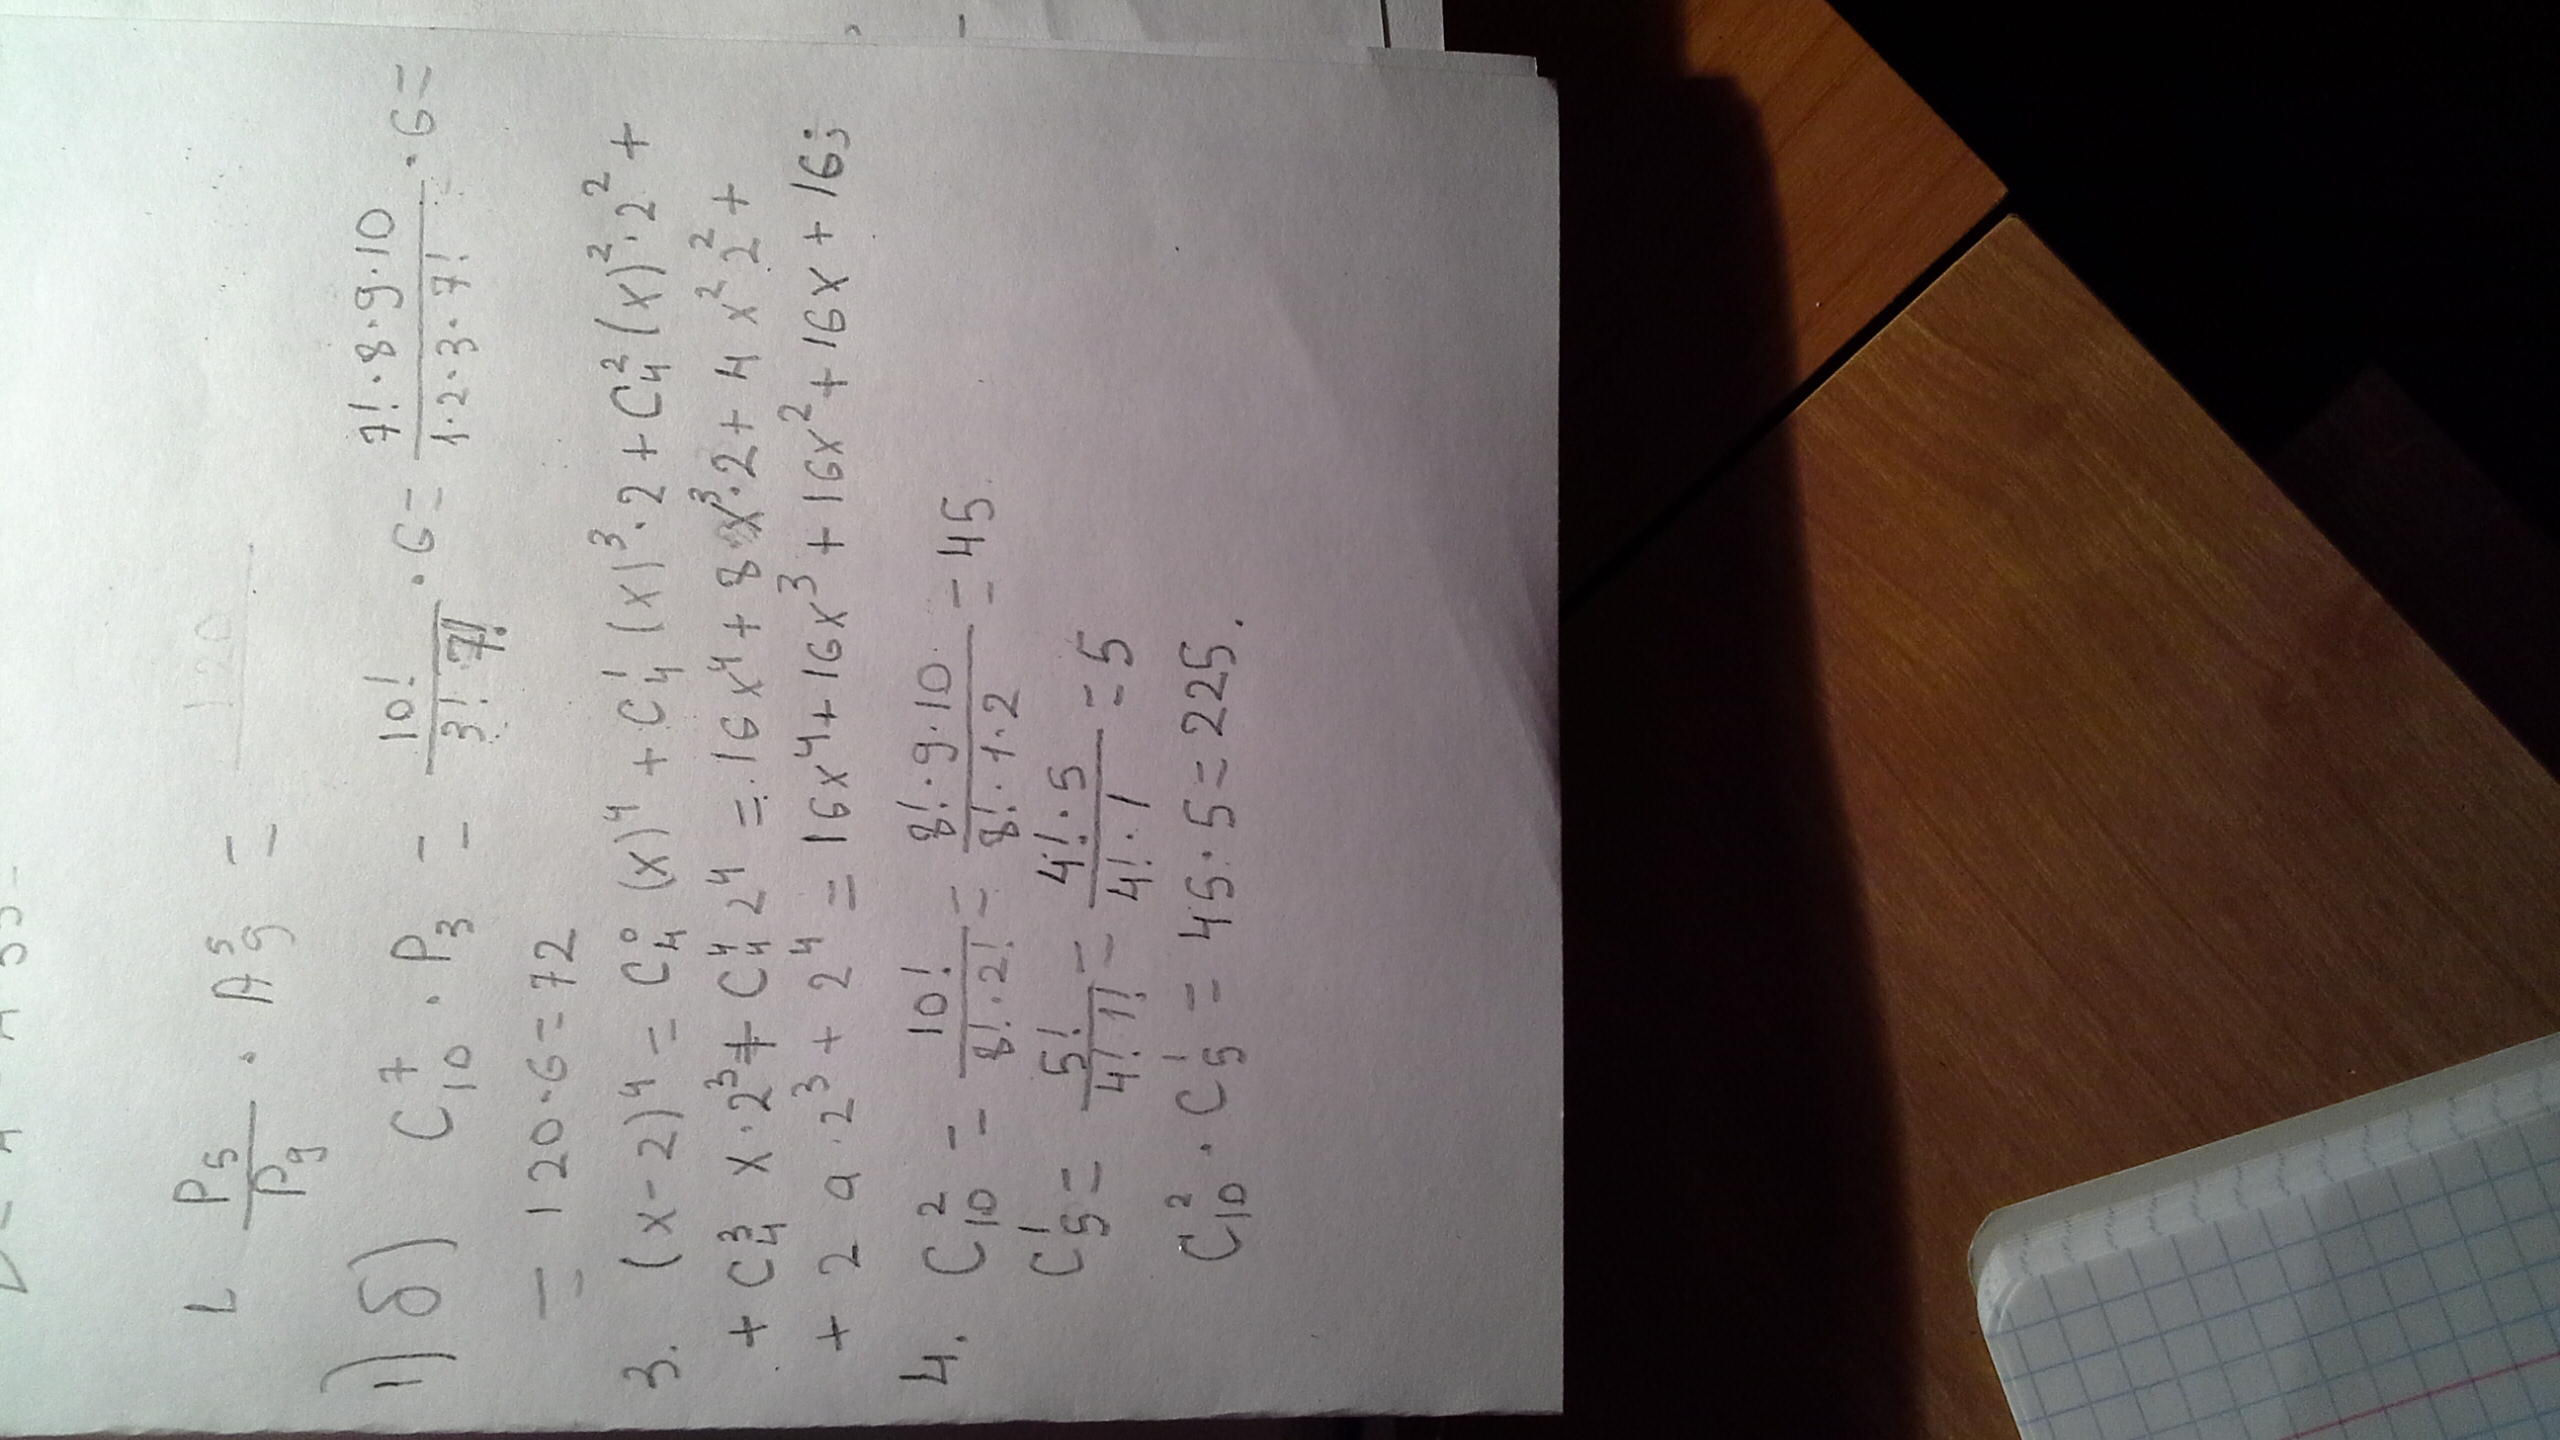 P₅/P₉ · A₉⁵ =
120
1) б) C₁₀⁷ · P₃ = 10!/(3! 7!) · 6 = (7! · 8 · 9 · 10)/(1 · 2 · 3 · 7!) · 6 =
= 120 · 6 = 72
3. (x - 2)⁴ = C₄⁰ (x)⁴ + C₄¹ (x)³ · 2 + C₄² (x)² · 2² +
+ C₄³ x · 2³ + C₄⁴ 2⁴ = 16x⁴ + 8x³ · 2 + 4x² 2² +
+ 2a · 2³ + 2⁴ = 16x⁴ + 16x³ + 16x² + 16x + 16;
4. C₁₀² = 10!/(8! · 2!) = (8! · 9 · 10)/(8! · 1 · 2) = 45
C₅¹ = 5!/(4! · 1!) = (4! · 5)/(4! · 1) = 5
C₁₀² · C₅¹ = 45 · 5 = 225.